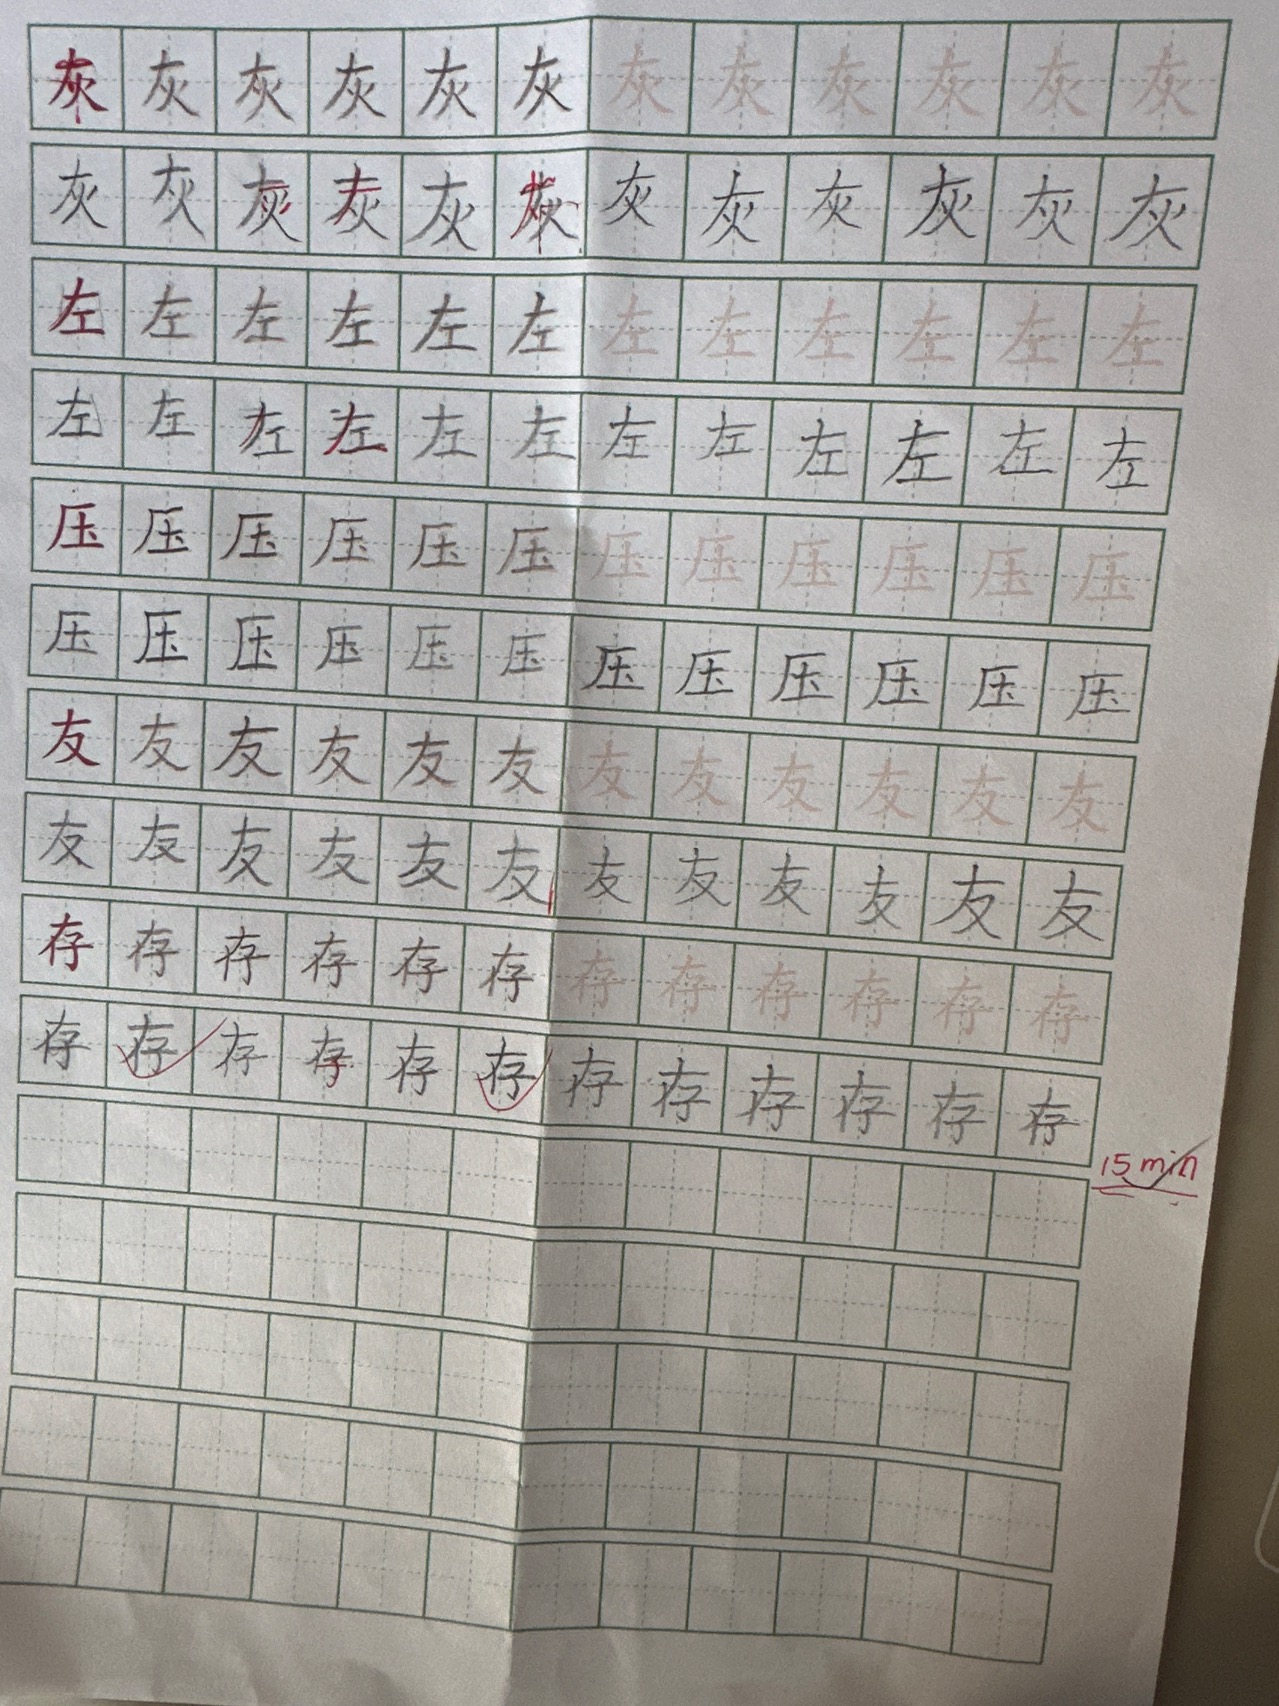 灰灰灰灰灰灰灰灰灰灰灰灰
灰灰灰灰灰灰灰灰灰灰灰灰
左左左左左左左左左左左左
左左左左左左左左左左左左
压压压压压压压压压压压压
压压压压压压压压压压压压
友友友友友友友友友友友友
友友友友友友友友友友友友
存存存存存存存存存存存存
存存存存存存存存存存存存
15 min